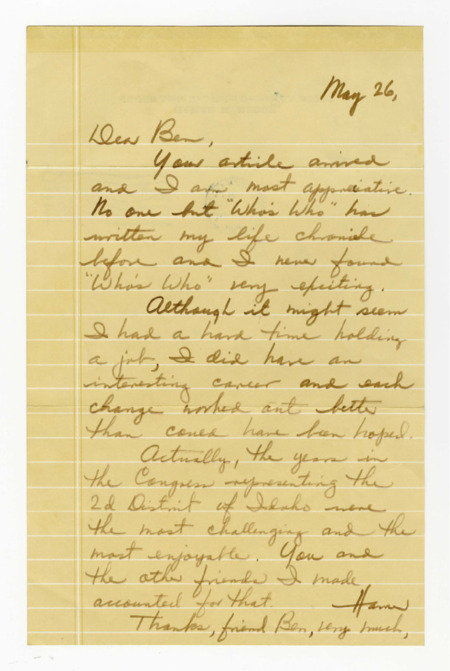 May 26,
Dear Ben,
Your article arrived
and I am most appreciative.
No one but "Who's Who" has
written my life chronicle
before and I never found
"Who's Who" very exciting.
Although it might seem
I had a hard time holding
a job, I did have an
interesting career and each
change worked out better
than could have been hoped.
Actually, the years in
the Congress representing the
2d District of Idaho were
the most challenging and the
most enjoyable. You and
the other friends I made
accounted for that.
Thanks, friend Ben, very much,